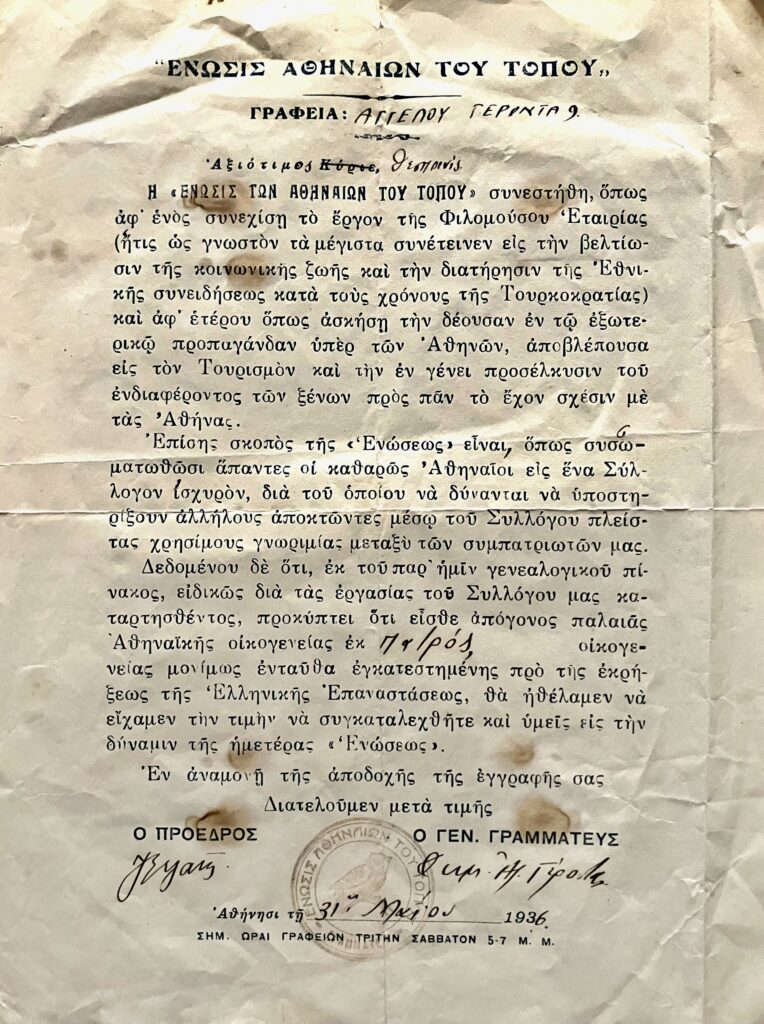 “ΕΝΩΣΙΣ ΑΘΗΝΑΙΩΝ ΤΟΥ ΤΟΠΟΥ„
ΓΡΑΦΕΙΑ: ΑΓΓΕΛΟΥ ΓΕΡΟΝΤΑ 9.
Ἀξιότιμος Κύριε,
Η «ΕΝΩΣΙΣ ΤΩΝ ΑΘΗΝΑΙΩΝ ΤΟΥ ΤΟΠΟΥ» συνεστήθη, ὅπως
ἀφ' ἑνὸς συνεχίσῃ τὸ ἔργον τῆς Φιλομούσου Ἑταιρίας
(ἥτις ὡς γνωστὸν τὰ μέγιστα συνέτεινεν εἰς τὴν βελτίω-
σιν τῆς κοινωνικῆς ζωῆς καὶ τὴν διατήρησιν τῆς Ἐθνι-
κῆς συνειδήσεως κατὰ τοὺς χρόνους τῆς Τουρκοκρατίας)
καὶ ἀφ' ἑτέρου ὅπως ἀσκήσῃ τὴν δέουσαν ἐν τῷ ἐξωτε-
ρικῷ προπαγάνδαν ὑπὲρ τῶν Ἀθηνῶν, ἀποβλέπουσα
εἰς τὸν Τουρισμὸν καὶ τὴν ἐν γένει προσέλκυσιν τοῦ
ἐνδιαφέροντος τῶν ξένων πρὸς πᾶν τὸ ἔχον σχέσιν μὲ
τὰς Ἀθήνας.
Ἐπίσης σκοπὸς τῆς «Ἑνώσεως» εἶναι, ὅπως συσσω-
ματωθῶσι ἅπαντες οἱ καθαρῶς Ἀθηναῖοι εἰς ἕνα Σύλ-
λογον ἰσχυρόν, διὰ τοῦ ὁποίου νὰ δύνανται νὰ ὑποστη-
ρίξουν ἀλλήλους ἀποκτῶντες μέσῳ τοῦ Συλλόγου πλείσ-
τας χρησίμους γνωριμίας μεταξὺ τῶν συμπατριωτῶν μας.
Δεδομένου δὲ ὅτι, ἐκ τοῦ παρ' ἡμῖν γενεαλογικοῦ πί-
νακος, εἰδικῶς διὰ τὰς ἐργασίας τοῦ Συλλόγου μας κα-
ταρτησθέντος, προκύπτει ὅτι εἶσθε ἀπόγονος παλαιᾶς
Ἀθηναϊκῆς οἰκογενείας ἐκ πατρός, οἰκογε-
νείας μονίμως ἐνταῦθα ἐγκατεστημένης πρὸ τῆς ἐκρή-
ξεως τῆς Ἑλληνικῆς Ἐπαναστάσεως, θὰ ἠθέλαμεν νὰ
εἴχαμεν τὴν τιμὴν νὰ συγκαταλεχθῆτε καὶ ὑμεῖς εἰς τὴν
δύναμιν τῆς ἡμετέρας «Ἑνώσεως».
Ἐν ἀναμονῇ τῆς ἀποδοχῆς τῆς ἐγγραφῆς σας
Διατελοῦμεν μετὰ τιμῆς
Ο ΠΡΟΕΔΡΟΣ Ο ΓΕΝ. ΓΡΑΜΜΑΤΕΥΣ
ΕΝΩΣΙΣ ΑΘΗΝΑΙΩΝ ΤΟΥ ΤΟΠΟΥ
Ἀθήνησι τῇ 31ῃ Μαΐου 1936
ΣΗΜ. ΩΡΑΙ ΓΡΑΦΕΙΩΝ ΤΡΙΤΗΝ ΣΑΒΒΑΤΟΝ 5-7 Μ. Μ.